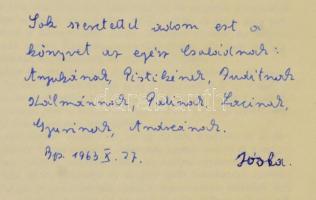 Sok szeretettel adom ezt a
könyvet az egész Családnak:
Anyukának, Pistikének, Juditnak
Kálmánnak, Palinak, Lacinak,
Gyurinak, Andreának.
Bp. 1963 X. 27.
Jóska.